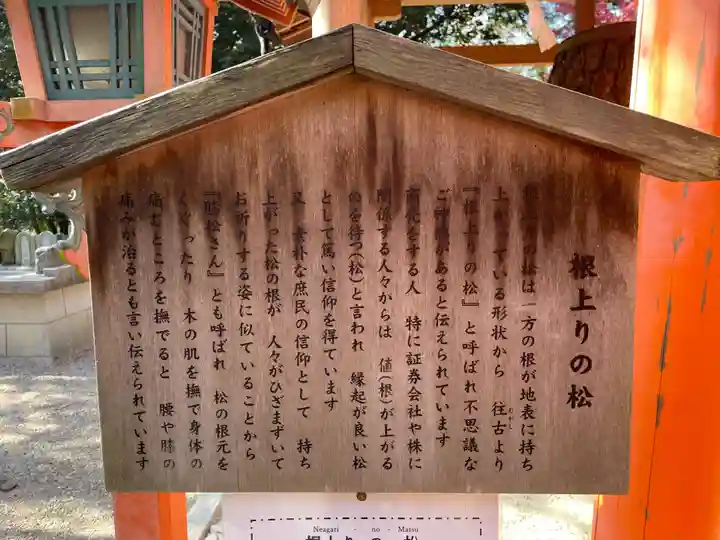 根上りの松
の松は一方の根が地表に持ち
上がっている形状から 往古より
むかし
『根上りの松』と呼ばれ不思議な
ご神徳があると伝えられています
商売をする人 特に証券会社や株に
関係する人々からは 値(根)が上がる
のを待つ(松)と言われ 縁起が良い松
として篤い信仰を得ています
又 素朴な庶民の信仰として 持ち
上がった松の根が 人々がひざまずいて
お祈りする姿に似ていることから
『膝松さん』とも呼ばれ 松の根元を
くぐったり 木の肌を撫で身体の
痛むところを撫でると 腰や膝の
痛みが治るとも言い伝えられています
Neagari - no - Matsu
根上りの松